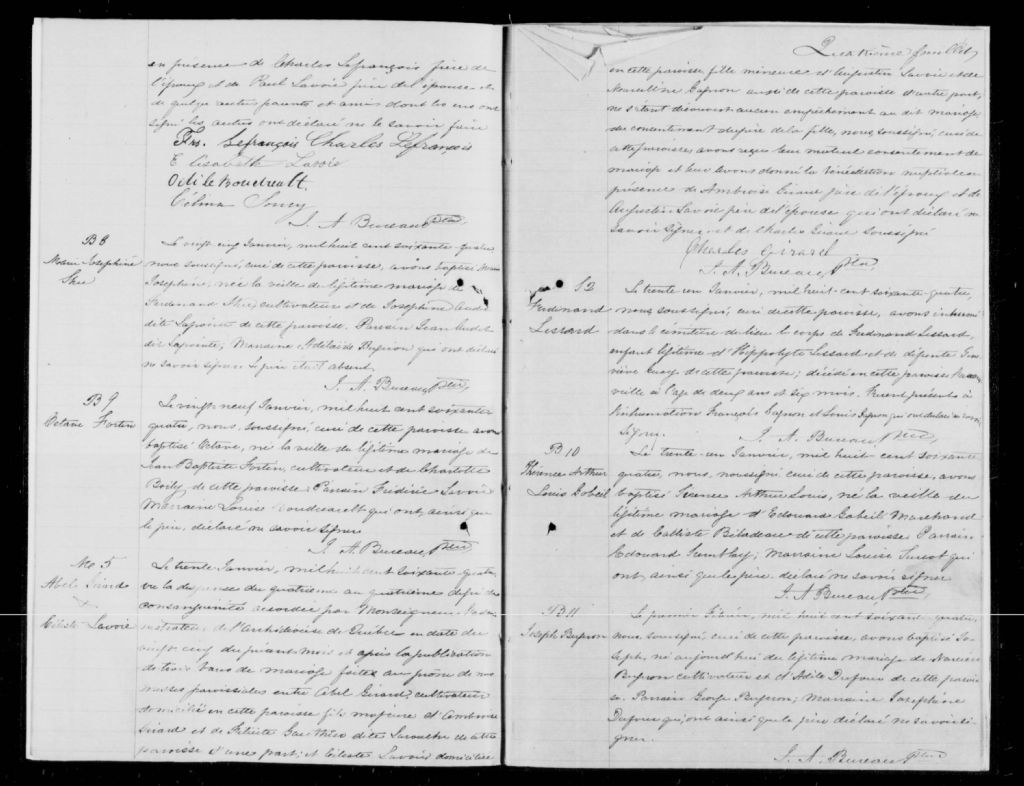 en presence de Charles Lefrançois père de
l'époux et de Paul Lavoie père de l'épouse et
de quelques autres parents et amis dont les uns ont
signé les autres ont déclaré ne le savoir faire
Frs. Lefrançois Charles Lefrançois
Elisabeth Lavoie
Odile Boudreault.
Célina
J. A. Bureau Ptre
B 8
Marie Josephine
Le vingt cinq Janvier, mil huit cent soixante quatre
nous soussigné, curé de cette paroisse, avons baptisé Marie
Josephine, née la veille du légitime mariage de
Ferdinand cultivateur et de Josephine Audet
dite Lapointe de cette paroisse. Parrain Jean Audet
dit Lapointe; Marraine Adelaide qui ont déclaré
ne savoir signer. Le père était absent.
J. A. Bureau Ptre
B 9
Octave Fortin
Le vingt neuf Janvier, mil huit cent soixante
quatre, nous, soussigné, curé de cette paroisse avons
baptisé Octave, né la veille du légitime mariage de
Jean Baptiste Fortin, cultivateur et de Charlotte
Boily de cette paroisse. Parrain Frédéric Savoie
Marraine Louise Boudreault qui ont, ainsi que
le père, déclaré ne savoir signer
J. A. Bureau Ptre
M 5
Abel Girard
+
Céleste Lavoie
Le trente Janvier, mil huit cent soixante quatre
vu la dispense du quatrième au quatrième degré de
consanguinité accordée par Monseigneur l'admi-
nistrateur de l'Archidiocèse de Québec en date du
vingt cinq du présent mois et après la publication
de trois bans de mariage faite au prône de nos
messes paroissiales entre Abel Girard, cultivateur
domicilié en cette paroisse fils majeur d'Ambroise
Girard et de Félicité dite de cette
paroisse d'une part; et Céleste Lavoie domiciliée
Quatrième feuillet
en cette paroisse, fille mineure d'Augustin Lavoie et de
Marcelline Gagnon aussi de cette paroisse d'autre part,
ne s'étant découvert aucun empêchement au dit mariage
du consentement du père de la fille, nous soussigné, curé de
cette paroisse, avons reçu leur mutuel consentement de
mariage et leur avons donné la bénédiction nuptiale en
présence de Ambroise Girard père de l'époux et de
Augustin Lavoie père de l'épouse qui ont déclaré ne
savoir signer, et de Charles Girard soussigné
Charles Girard
J. A. Bureau, Ptre
S 2
Ferdinand
Lessard
Le trente un Janvier, mil huit cent soixante quatre,
nous, soussigné, curé de cette paroisse, avons inhumé
dans le cimetière du lieu le corps de Ferdinand Lessard,
enfant légitime d'Hippolyte Lessard et de défunte Gene-
viève de cette paroisse; décédé en cette paroisse l'avant
veille à l'age de deux ans et six mois. Furent présents à
l'inhumation François Gagnon et Louis Gagnon qui ont déclaré ne savoir
signer.
J. A. Bureau Ptre
B 10
Térence Arthur
Louis Gobeil
Le trente-un Janvier, mil huit cent soixante
quatre, nous, soussigné curé de cette paroisse, avons
baptisé Térence Arthur Louis, né la veille du
légitime mariage d'Edouard Gobeil Marchand
et de Calliste Bilodeau de cette paroisse Parrain
Edouard Tremblay; Marraine Louise Turcot qui
ont, ainsi que le père, déclaré ne savoir signer
J. A. Bureau, Ptre
B 11
Joseph
Le premier Février, mil huit cent soixante-quatre,
nous, soussigné, curé de cette paroisse, avons baptisé Jo-
seph, né aujourd'hui du légitime mariage de Narcisse
cultivateur et d'Adèle Dufour de cette parois-
se. Parrain George Marraine Joséphine
Dufour qui, ont ainsi que le père déclaré ne savoir si-
gner.
J. A. Bureau Ptre